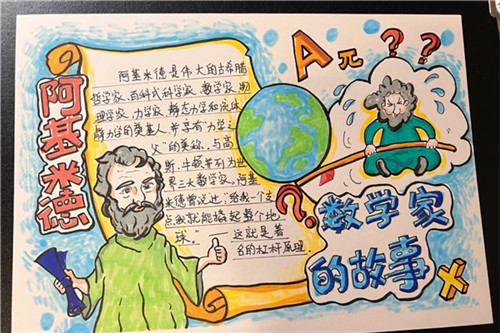 阿基米德
阿基米德是伟大的古希腊
哲学家、百科式科学家、数学家、物
理学家、力学家、静态力学和流体
静力学的奠基人,并享有"力学之
父"的美称,与高
斯、牛顿并列为世
界三大数学家。阿基
米德曾说过:"给我一个支
点,我就能撬起整个地
球。"
这就是著
名的杠杆原理
A π ? ?
?
数学家
的故事
X